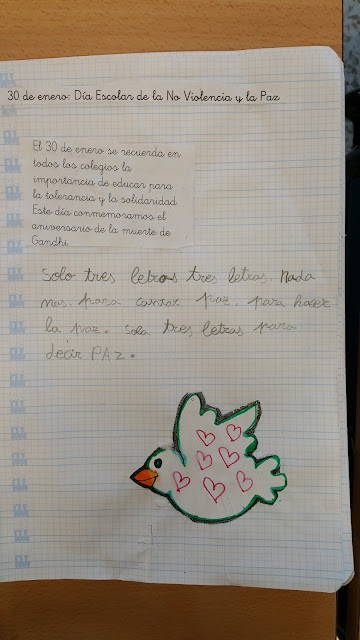 30 de enero: Día Escolar de la No Violencia y la Paz
El 30 de enero se recuerda en
todos los colegios la
importancia de educar para
la tolerancia y la solidaridad.
Este día conmemoramos el
aniversario de la muerte de
Gandhi.
Solo tres letras tres letras. Nada
mas. para cantar paz. para hacer
la paz. solo tres letras para
decir PAZ.